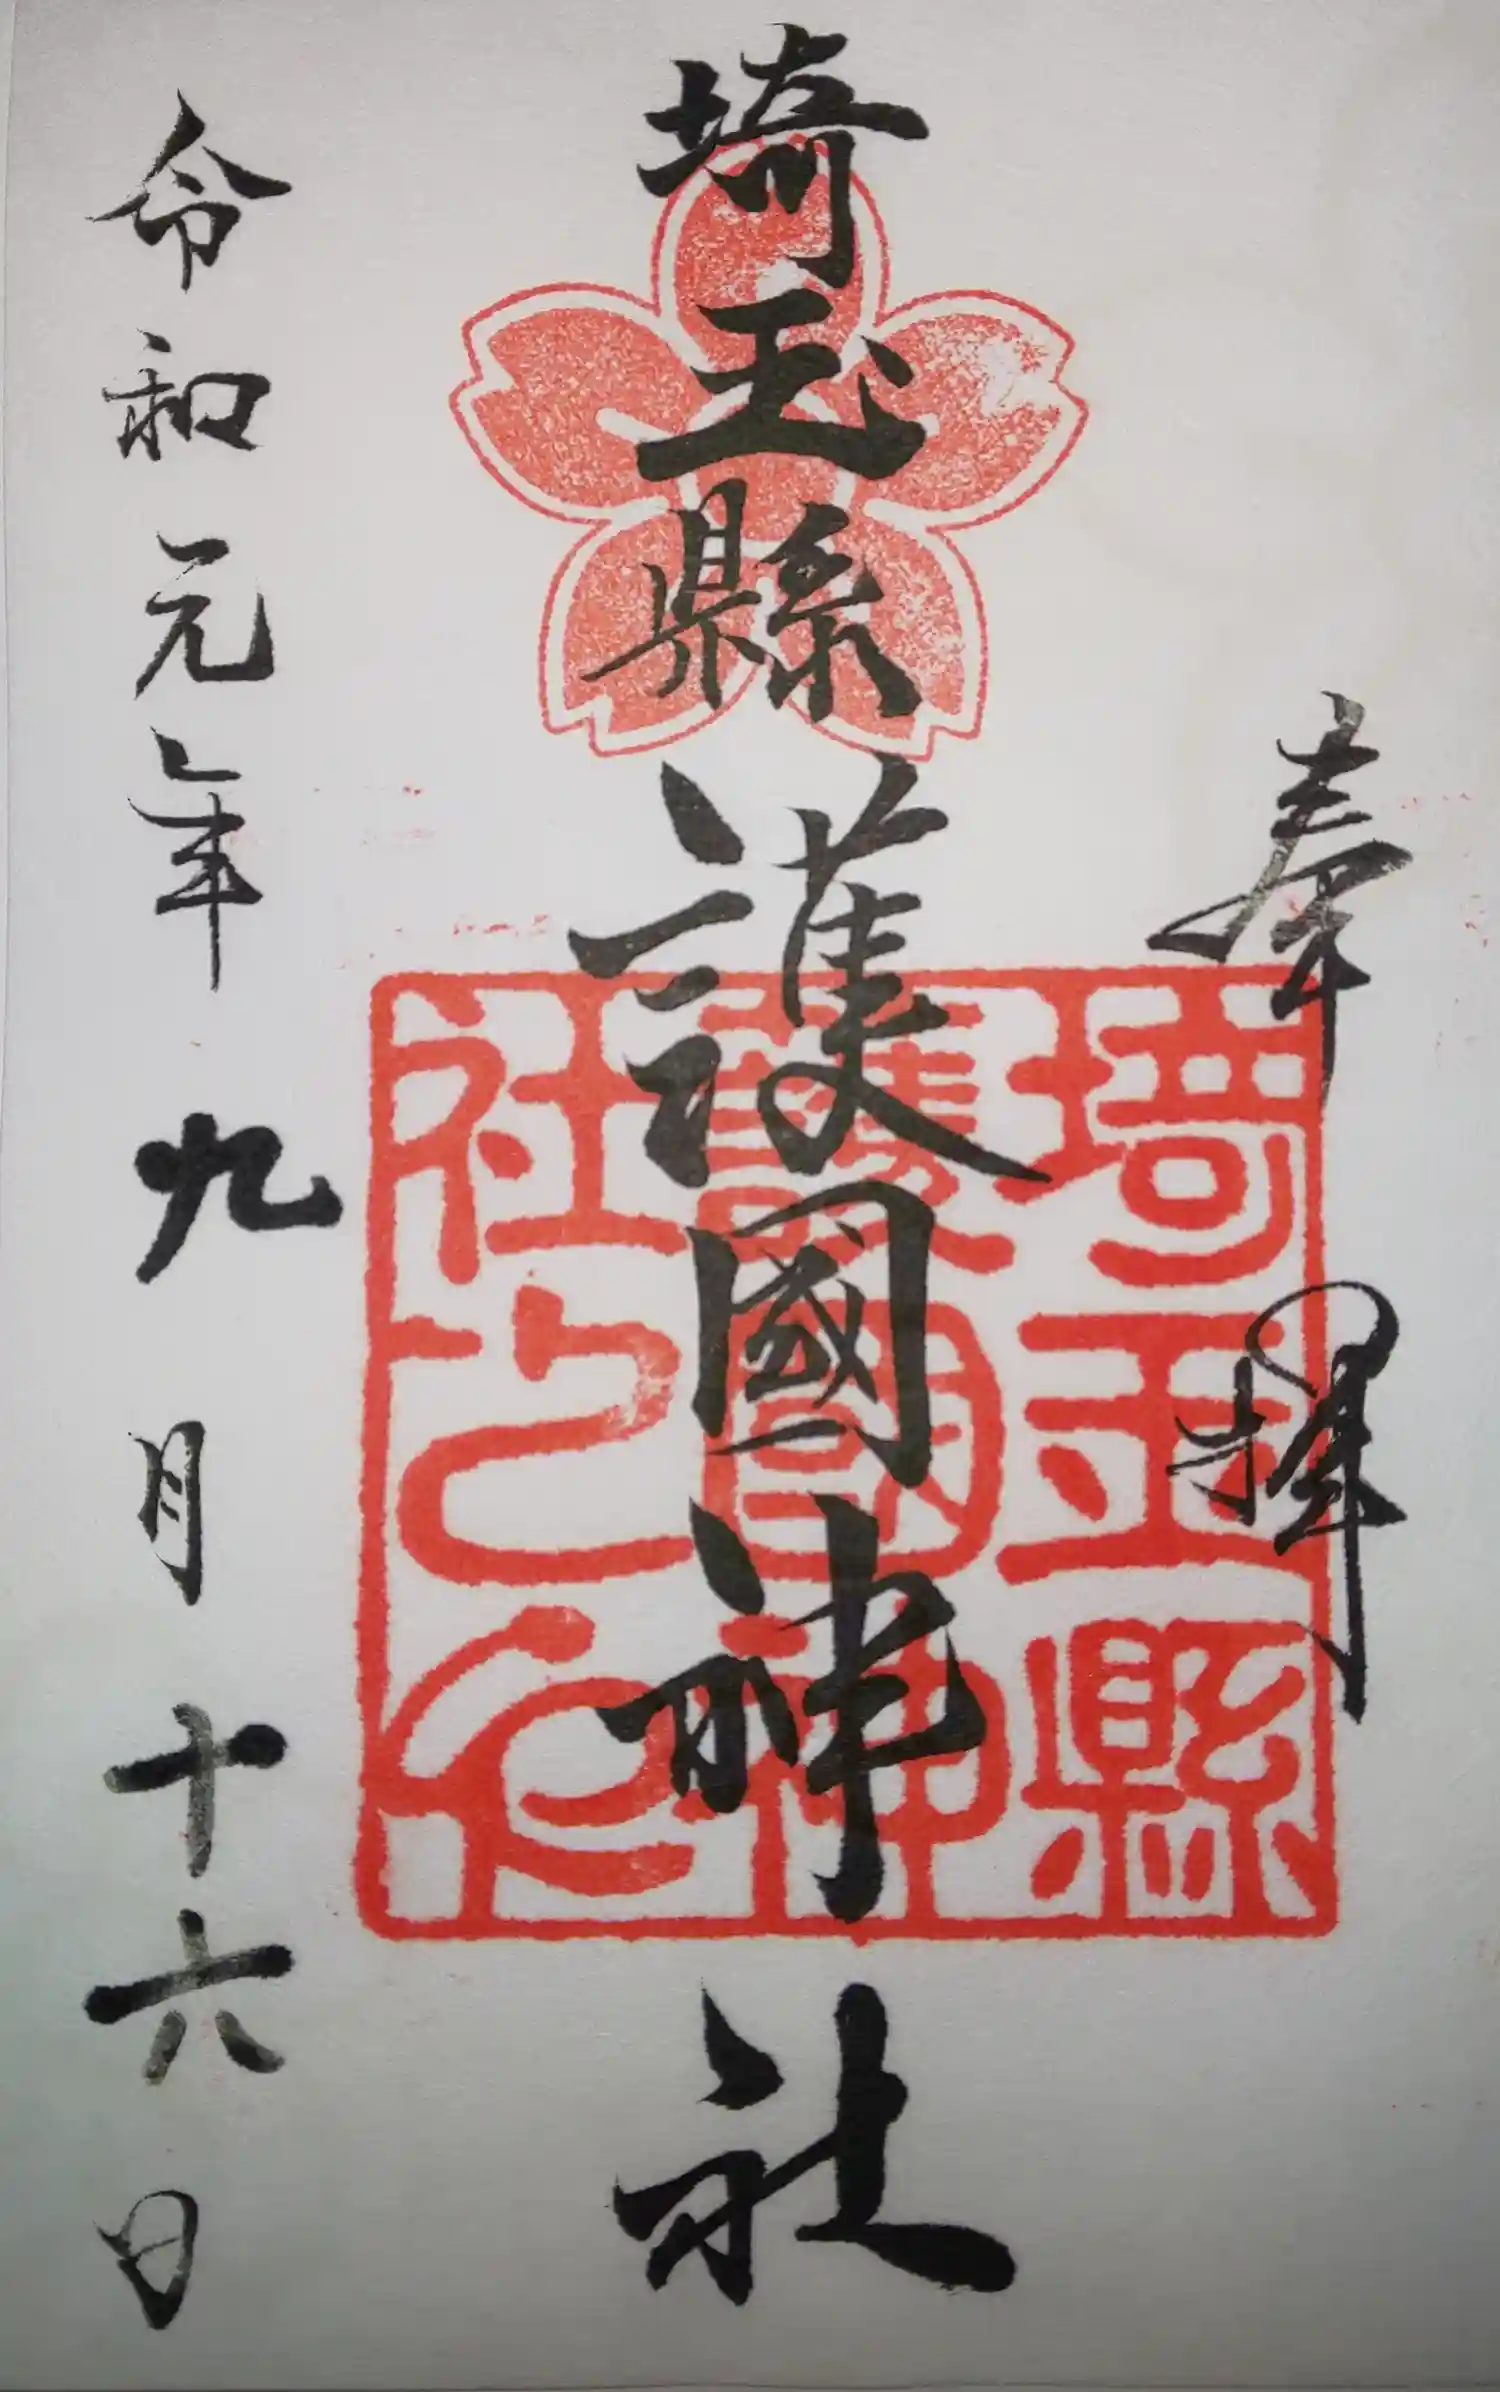 奉拝
埼玉縣護國神社
埼玉縣
護國神
社之印
令和元年九月十六日